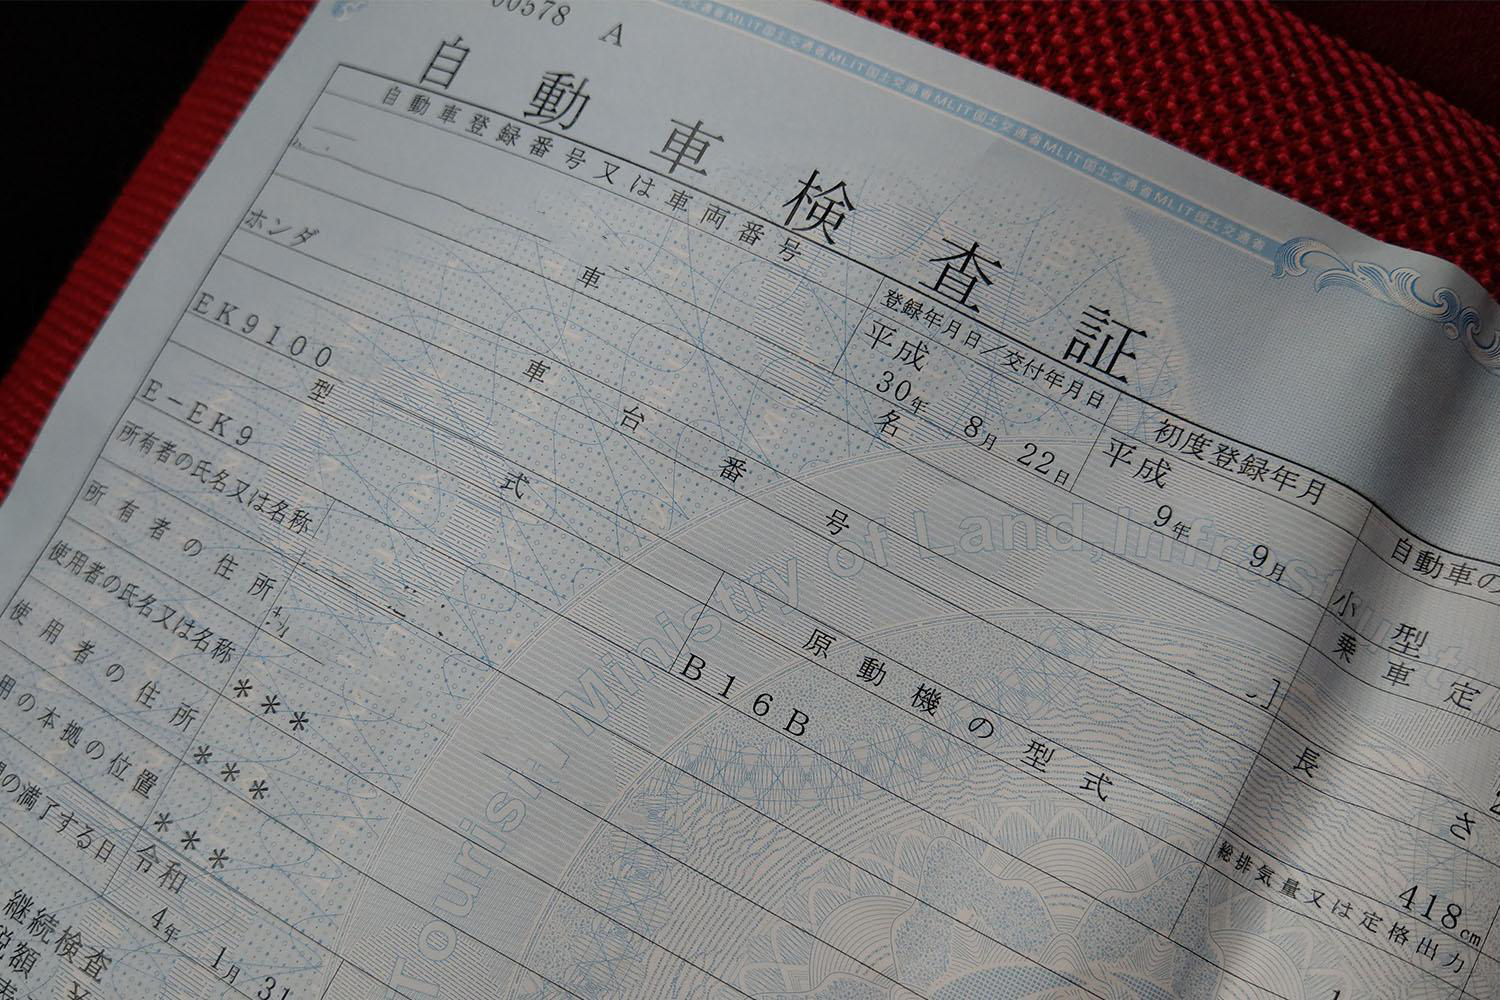 00578 A
自動車検査証
自動車登録番号又は車両番号
登録年月日／交付年月日
初度登録年月
自動車の
平成
30年 8月 22日
平成
9年 9月
小型
車名
ホンダ
乗車定
車台番号
EK9100
長さ
418cm
型式
原動機の型式
E-EK9
B16B
総排気量又は定格出力
所有者の氏名又は名称
所有者の住所
使用者の氏名又は名称
***
使用者の住所
***
用の本拠の位置
***
の満了する日
令和
4年 1月 31
継続検査
税額
MLIT国土交通省MLIT国土交通省MLIT国土交通省MLIT国土交通省MLIT国土交通省MLIT国土交通省
Ministry of Land,Infrast
Tourism